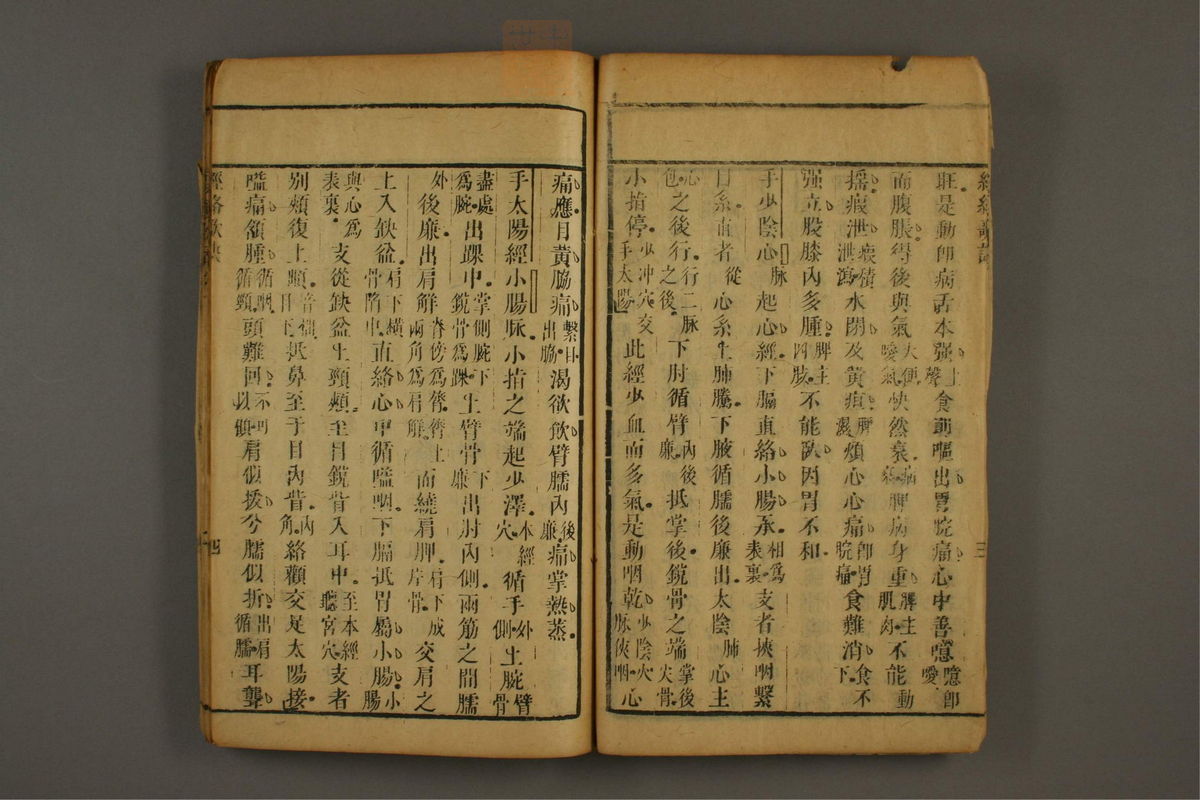 旺是動即病舌本强聲食則嘔出胃脘痛心中善噫噫即噯
而腹脹得後與氣大便噯氣快然衰病衰脾病身重脾主肌肉不能動
摇瘕泄瘕積泄瀉水閉及黄疸脾濕煩心心痛即胃脘痛食難消食不下
强立股膝內多腫脾主四肢不能臥因胃不和
手少陰心脉起心經下膈直絡小腸承相為表裏支者挾咽繫
目系直者從心系上肺騰下腋循臑後廉出太陰肺心主
心包之後行行二脉之後下肘循臂內後廉抵掌後銳骨之端掌後尖骨
小指停少冲穴交手太陽此經少血而多氣是動咽乾少陰火脉俠咽心
痛應目黄脇痛繫目出脇渴欲飲臂臑內後廉痛掌熱蒸
手太陽經小腸脉小指之端起少澤本經穴循手外側上腕臂骨
盡處為腕出踝中掌側腕下銳骨為踝上臂骨下廉出肘內側兩筋之間臑
外後廉出肩解脊傍為膂膂上兩角為肩解而繞肩胛肩下成片骨交肩之
上入缺盆肩下横骨陷中直絡心中循嗌咽下膈抵胃屬小腸小腸
與心為表裏支從缺盆上頸頰至目銳眥入耳中至本經聽宮穴支者
別頰復上䪼音拙目下抵鼻至于目內眥內角絡顴交足太陽接
嗌痛頷腫循咽循頸頭難回不可以顧肩似拔兮臑似折出肩循臑耳聾